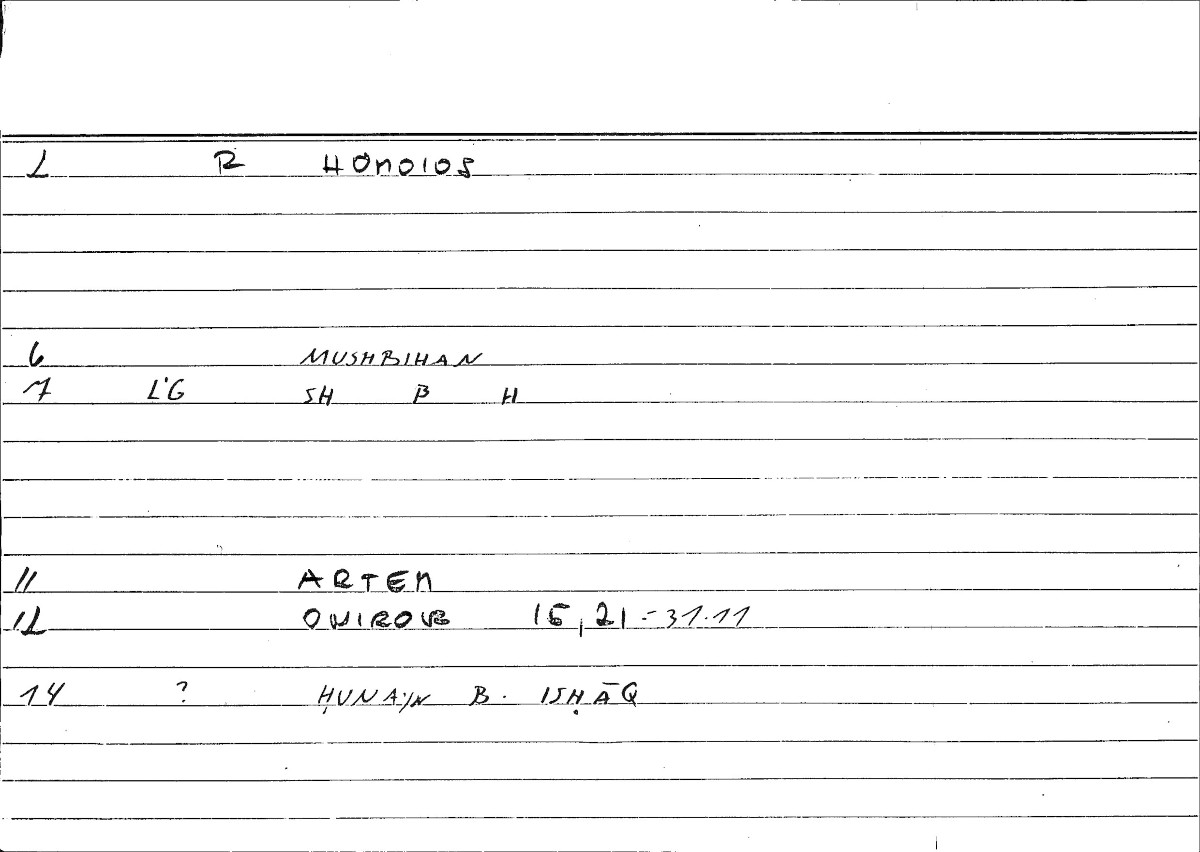 1 R HOMOIOS
6 MUSHBIHAN
7 L'G SH B H
11 ARTEM
12 15,21 = 31.11
14 ? ḤUNAYN B. ISḤĀQ